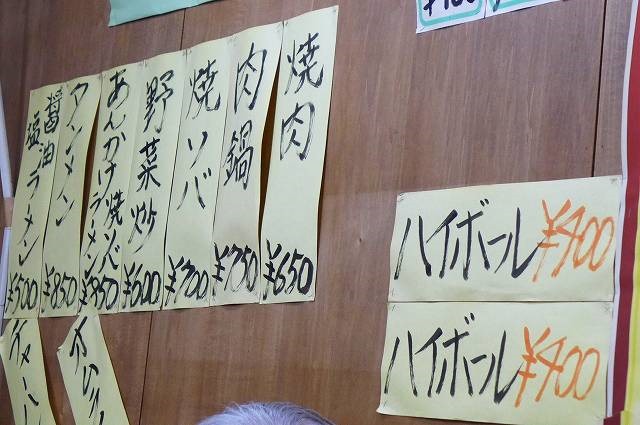 焼肉 ¥650
肉鍋 ¥750
焼ソバ ¥700
野菜炒 ¥500
あんかけ焼ソバ
ラーメン ¥850
アンメン ¥850
醤油
塩
ラーメン ¥500
ハイボール ¥400
ハイボール ¥400
チャーハン